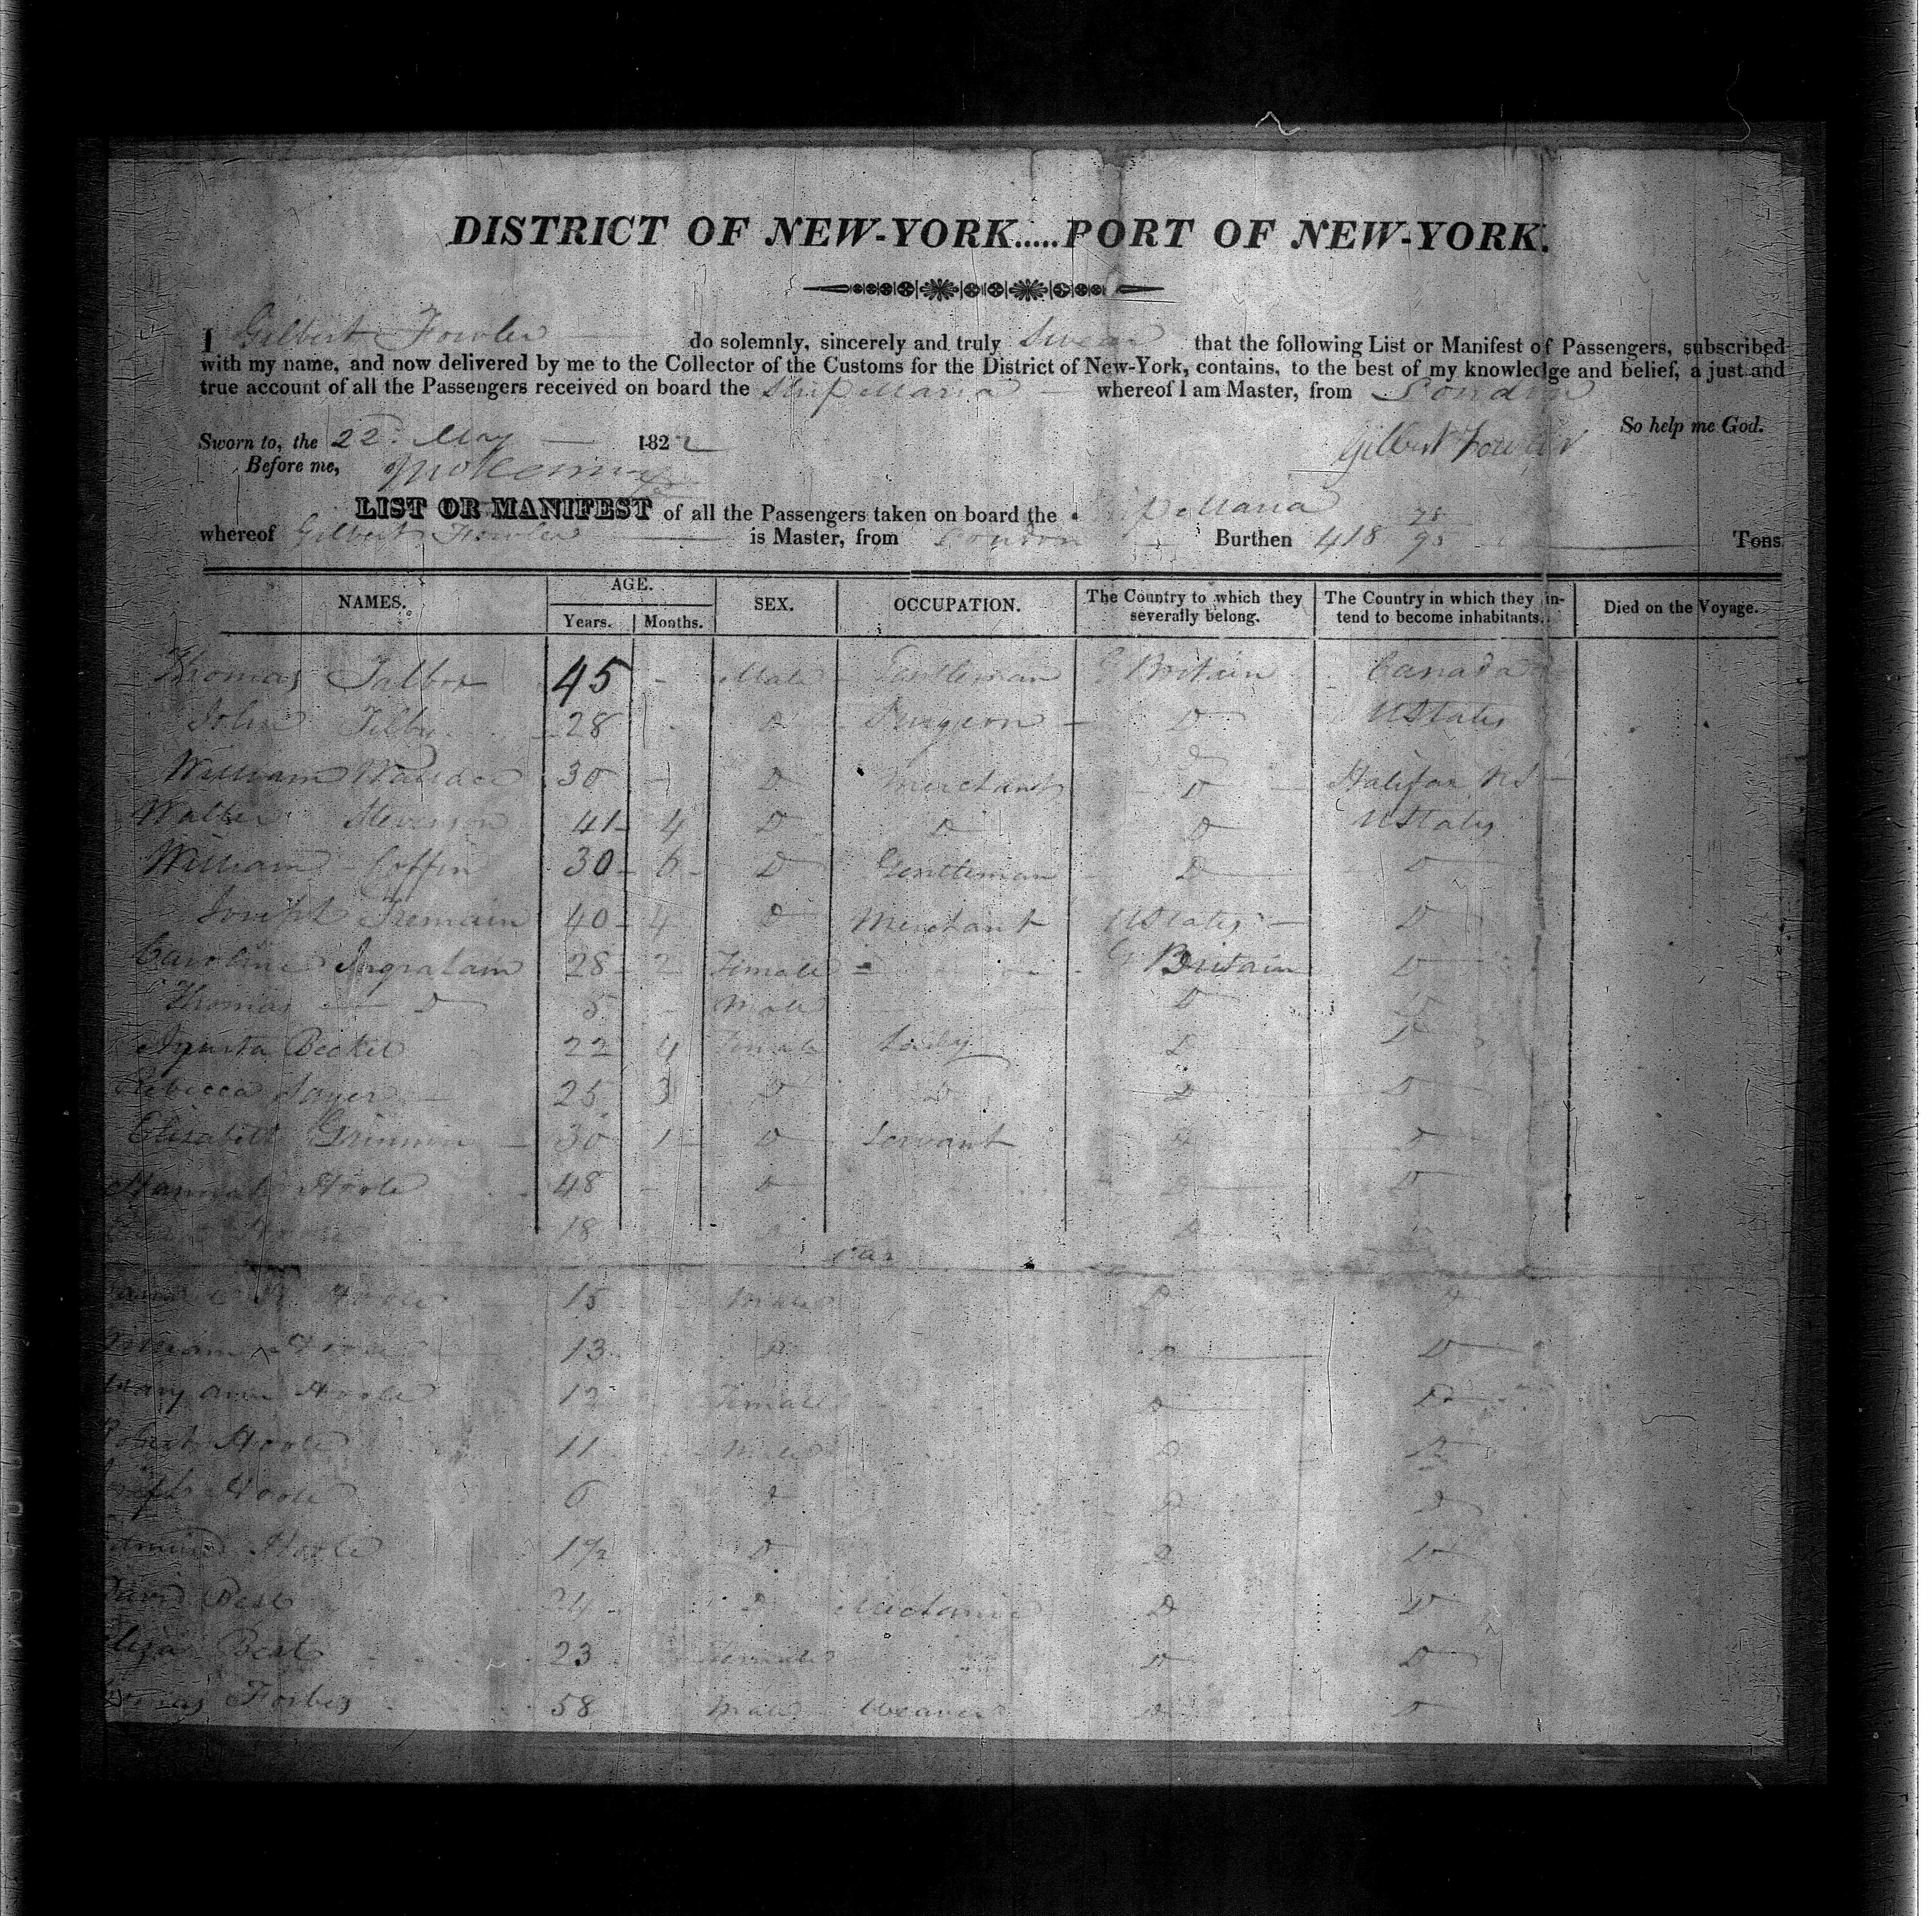 DISTRICT OF NEW-YORK.....PORT OF NEW-YORK.
I Gilbert Fowler do solemnly, sincerely and truly Swear that the following List or Manifest of Passengers, subscribed
with my name, and now delivered by me to the Collector of the Customs for the District of New-York, contains, to the best of my knowledge and belief, a just and
true account of all the Passengers received on board the Ship Maria whereof I am Master, from London
So help me God.
Sworn to, the 22. May 1822 Gilbert Fowler
Before me,
LIST OR MANIFEST of all the Passengers taken on board the Ship Maria
whereof Gilbert Fowler is Master, from London Burthen 418 Tons
NAMES. AGE. Years. Months. SEX. OCCUPATION. The Country to which they severally belong. The Country in which they intend to become inhabitants. Died on the Voyage.
Thomas Talbot 45 - Male Gentleman G Britain Canada
John 28 - D Surgeon D UStates
William 30 - D Merchant D Halifax NS
Walter Stevenson 41 4 D D D UStates
William Coffin 30 6 D Gentleman D D
Joseph Tremain 40 4 D Merchant UStates D
Caroline Ingraham 28 2 Female - G Britain D
Thomas D 5 - Male D D
Becket 22 4 Female Lady D D
Rebecca Sayer 25 3 D D D D
Elizabeth 30 1 D Servant D D
Hannah Hoole 48 - D D D
18 D D
Hoole 15 Male D D
William Hoole 13 D D D
Mary Ann Hoole 12 Female D D
Robert Hoole 11 Male D D
Joseph Hoole 6 D D D
Edmund Hoole 1½ D D D
David Best 24 D Mechanic D D
Eliza Best 23 Female D D
Thomas Forbes 58 Male Weaver D D